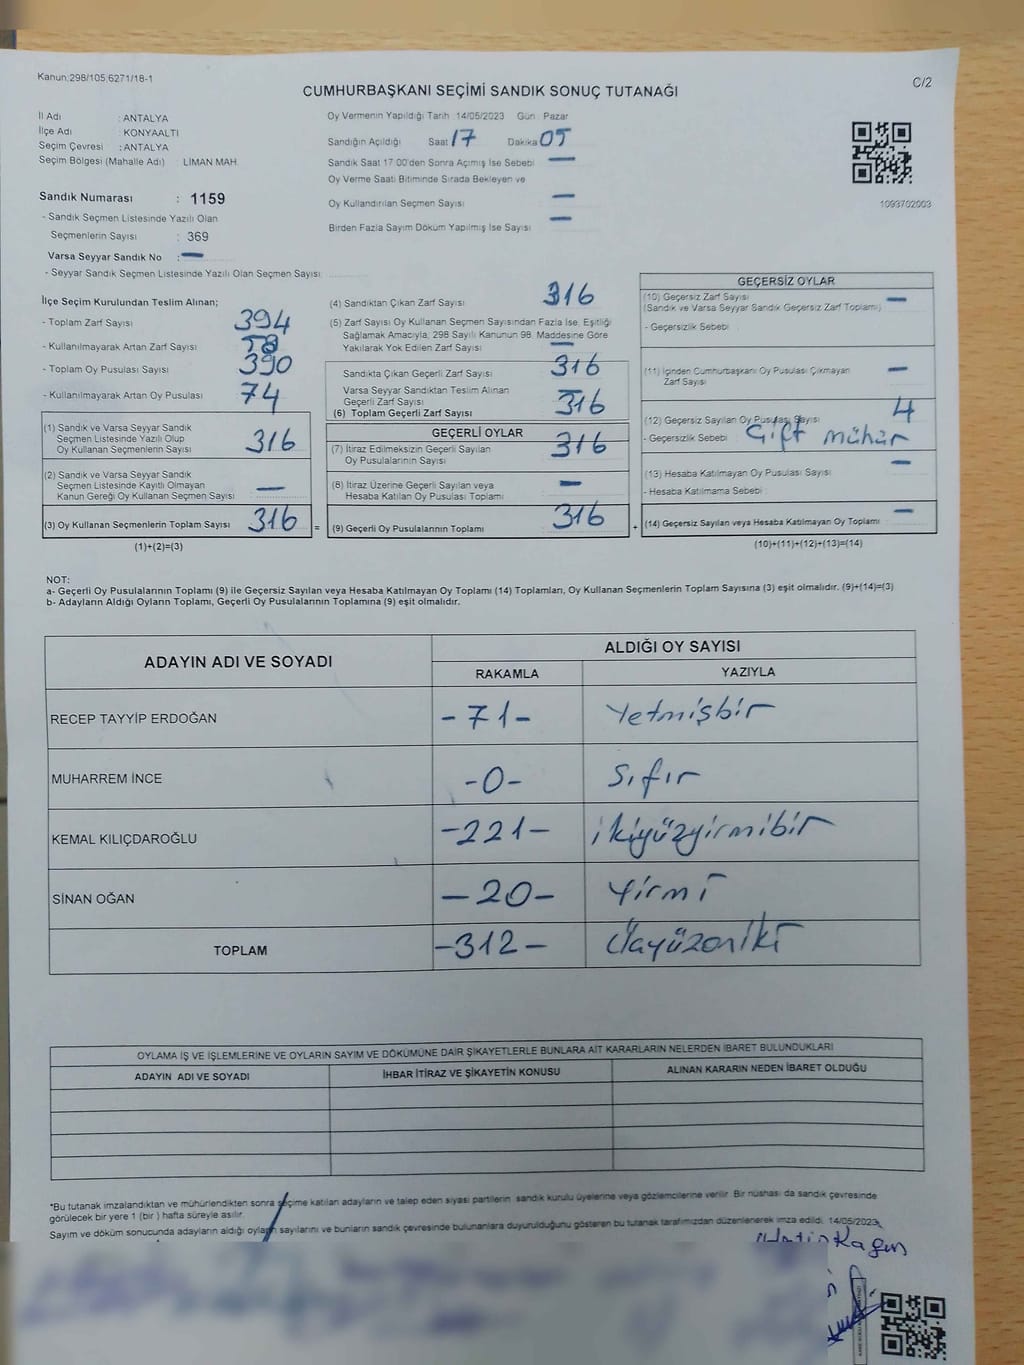 Kanun:298/105,6271/18-1
C/2
CUMHURBAŞKANI SEÇİMİ SANDIK SONUÇ TUTANAĞI
İl Adı : ANTALYA
İlçe Adı : KONYAALTI
Seçim Çevresi : ANTALYA
Seçim Bölgesi (Mahalle Adı) : LİMAN MAH.
Sandık Numarası : 1159
- Sandık Seçmen Listesinde Yazılı Olan
Seçmenlerin Sayısı : 369
Varsa Seyyar Sandık No : —
- Seyyar Sandık Seçmen Listesinde Yazılı Olan Seçmen Sayısı
Oy Vermenin Yapıldığı Tarih 14/05/2023 Gün Pazar
Sandığın Açıldığı Saat 17 Dakika 05
Sandık Saat 17:00'den Sonra Açılmış İse Sebebi —
Oy Verme Saati Bitiminde Sırada Bekleyen ve
Oy Kullandırılan Seçmen Sayısı —
Birden Fazla Sayım Döküm Yapılmış İse Sayısı —
1093702003
İlçe Seçim Kurulundan Teslim Alınan;
- Toplam Zarf Sayısı 394
- Kullanılmayarak Artan Zarf Sayısı 78
- Toplam Oy Pusulası Sayısı 390
- Kullanılmayarak Artan Oy Pusulası 74
(1) Sandık ve Varsa Seyyar Sandık
Seçmen Listesinde Yazılı Olup
Oy Kullanan Seçmenlerin Sayısı 316
(2) Sandık ve Varsa Seyyar Sandık
Seçmen Listesinde Kayıtlı Olmayan
Kanun Gereği Oy Kullanan Seçmen Sayısı —
(3) Oy Kullanan Seçmenlerin Toplam Sayısı 316 =
(1)+(2)=(3)
(4) Sandıktan Çıkan Zarf Sayısı 316
(5) Zarf Sayısı Oy Kullanan Seçmen Sayısından Fazla İse, Eşitliği
Sağlamak Amacıyla, 298 Sayılı Kanunun 98. Maddesine Göre
Yakılarak Yok Edilen Zarf Sayısı —
Sandıkta Çıkan Geçerli Zarf Sayısı 316
Varsa Seyyar Sandıktan Teslim Alınan
Geçerli Zarf Sayısı —
(6) Toplam Geçerli Zarf Sayısı 316
GEÇERLİ OYLAR
(7) İtiraz Edilmeksizin Geçerli Sayılan
Oy Pusulalarının Sayısı 316
(8) İtiraz Üzerine Geçerli Sayılan veya
Hesaba Katılan Oy Pusulası Toplamı —
(9) Geçerli Oy Pusulalarının Toplamı 316 +
GEÇERSİZ OYLAR
(10) Geçersiz Zarf Sayısı —
(Sandık ve Varsa Seyyar Sandık Geçersiz Zarf Toplamı)
- Geçersizlik Sebebi
(11) İçinden Cumhurbaşkanı Oy Pusulası Çıkmayan
Zarf Sayısı —
(12) Geçersiz Sayılan Oy Pusulası Sayısı 4
- Geçersizlik Sebebi Çift mühür
(13) Hesaba Katılmayan Oy Pusulası Sayısı —
- Hesaba Katılmama Sebebi
(14) Geçersiz Sayılan veya Hesaba Katılmayan Oy Toplamı —
(10)+(11)+(12)+(13)=(14)
NOT:
a- Geçerli Oy Pusulalarının Toplamı (9) ile Geçersiz Sayılan veya Hesaba Katılmayan Oy Toplamı (14) Toplamları, Oy Kullanan Seçmenlerin Toplam Sayısına (3) eşit olmalıdır. (9)+(14)=(3)
b- Adayların Aldığı Oyların Toplamı, Geçerli Oy Pusulalarının Toplamına (9) eşit olmalıdır.
ADAYIN ADI VE SOYADI
ALDIĞI OY SAYISI
RAKAMLA YAZIYLA
RECEP TAYYİP ERDOĞAN -71- Yetmişbir
MUHARREM İNCE -0- Sıfır
KEMAL KILIÇDAROĞLU -221- ikiyüzyirmibir
SİNAN OĞAN -20- Yirmi
TOPLAM -312- Üçyüzoniki
OYLAMA İŞ VE İŞLEMLERİNE VE OYLARIN SAYIM VE DÖKÜMÜNE DAİR ŞİKAYETLERLE BUNLARA AİT KARARLARIN NELERDEN İBARET BULUNDUKLARI
ADAYIN ADI VE SOYADI İHBAR İTİRAZ VE ŞİKAYETİN KONUSU ALINAN KARARIN NEDEN İBARET OLDUĞU
*Bu tutanak imzalandıktan ve mühürlendikten sonra seçime katılan adayların ve talep eden siyasi partilerin sandık kurulu üyelerine veya gözlemcilerine verilir. Bir nüshası da sandık çevresinde
görülecek bir yere 1 (bir) hafta süreyle asılır.
Sayım ve döküm sonucunda adayların aldığı oyların sayılarını ve bunların sandık çevresinde bulunanlara duyurulduğunu gösteren bu tutanak tarafımızdan düzenlenerek imza edildi. 14/05/2023